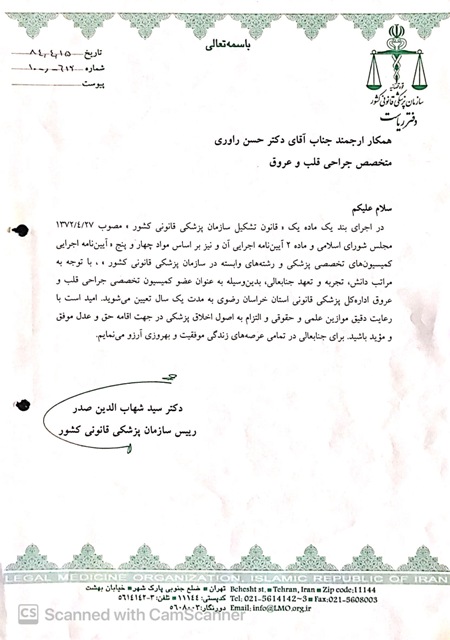 باسمه‌تعالی
تاریخ ۸۴،۴،۱۵
شماره ۱۰۰۰-۶۱۲
پیوست
قوه قضائیه
سازمان پزشکی قانونی کشور
دفتر ریاست
همکار ارجمند جناب آقای دکتر حسن راوری
متخصص جراحی قلب و عروق
سلام علیکم
در اجرای بند یک ماده یک « قانون تشکیل سازمان پزشکی قانونی کشور » مصوب ۱۳۷۲/۴/۲۷
مجلس شورای اسلامی و ماده ۲ آیین‌نامه اجرایی آن و نیز بر اساس مواد چهار و پنج «آیین‌نامه اجرایی
کمیسیون‌های تخصصی پزشکی و رشته‌های وابسته در سازمان پزشکی قانونی کشور » ، با توجه به
مراتب دانش، تجربه و تعهد جنابعالی، بدین‌وسیله به عنوان عضو کمیسیون تخصصی جراحی قلب و
عروق اداره‌کل پزشکی قانونی استان خراسان رضوی به مدت یک سال تعیین می‌شوید. امید است با
رعایت دقیق موازین علمی و حقوقی و التزام به اصول اخلاق پزشکی در جهت اقامه حق و عدل موفق
و مؤید باشید. برای جنابعالی در تمامی عرصه‌های زندگی موفقیت و بهروزی آرزو می‌نمایم.
دکتر سید شهاب الدین صدر
رییس سازمان پزشکی قانونی کشور
LEGAL MEDICINE ORGANIZATION, ISLAMIC REPUBLIC OF IRAN
تهران ■ ضلع جنوبی پارک شهر ■ خیابان بهشت Behesht st ■ Tehran, Iran ■ Zip code: 11144
کدپستی: ۱۱۱۴۴ ■ تلفن: ۳-۵۶۱۴۱۴۲ Tel: 021-5614142~3 ■ Fax: 021-5608003
دورنگار: ۵۶۰۸۰۰۳ Email: info@LMO.org.ir
CS Scanned with CamScanner